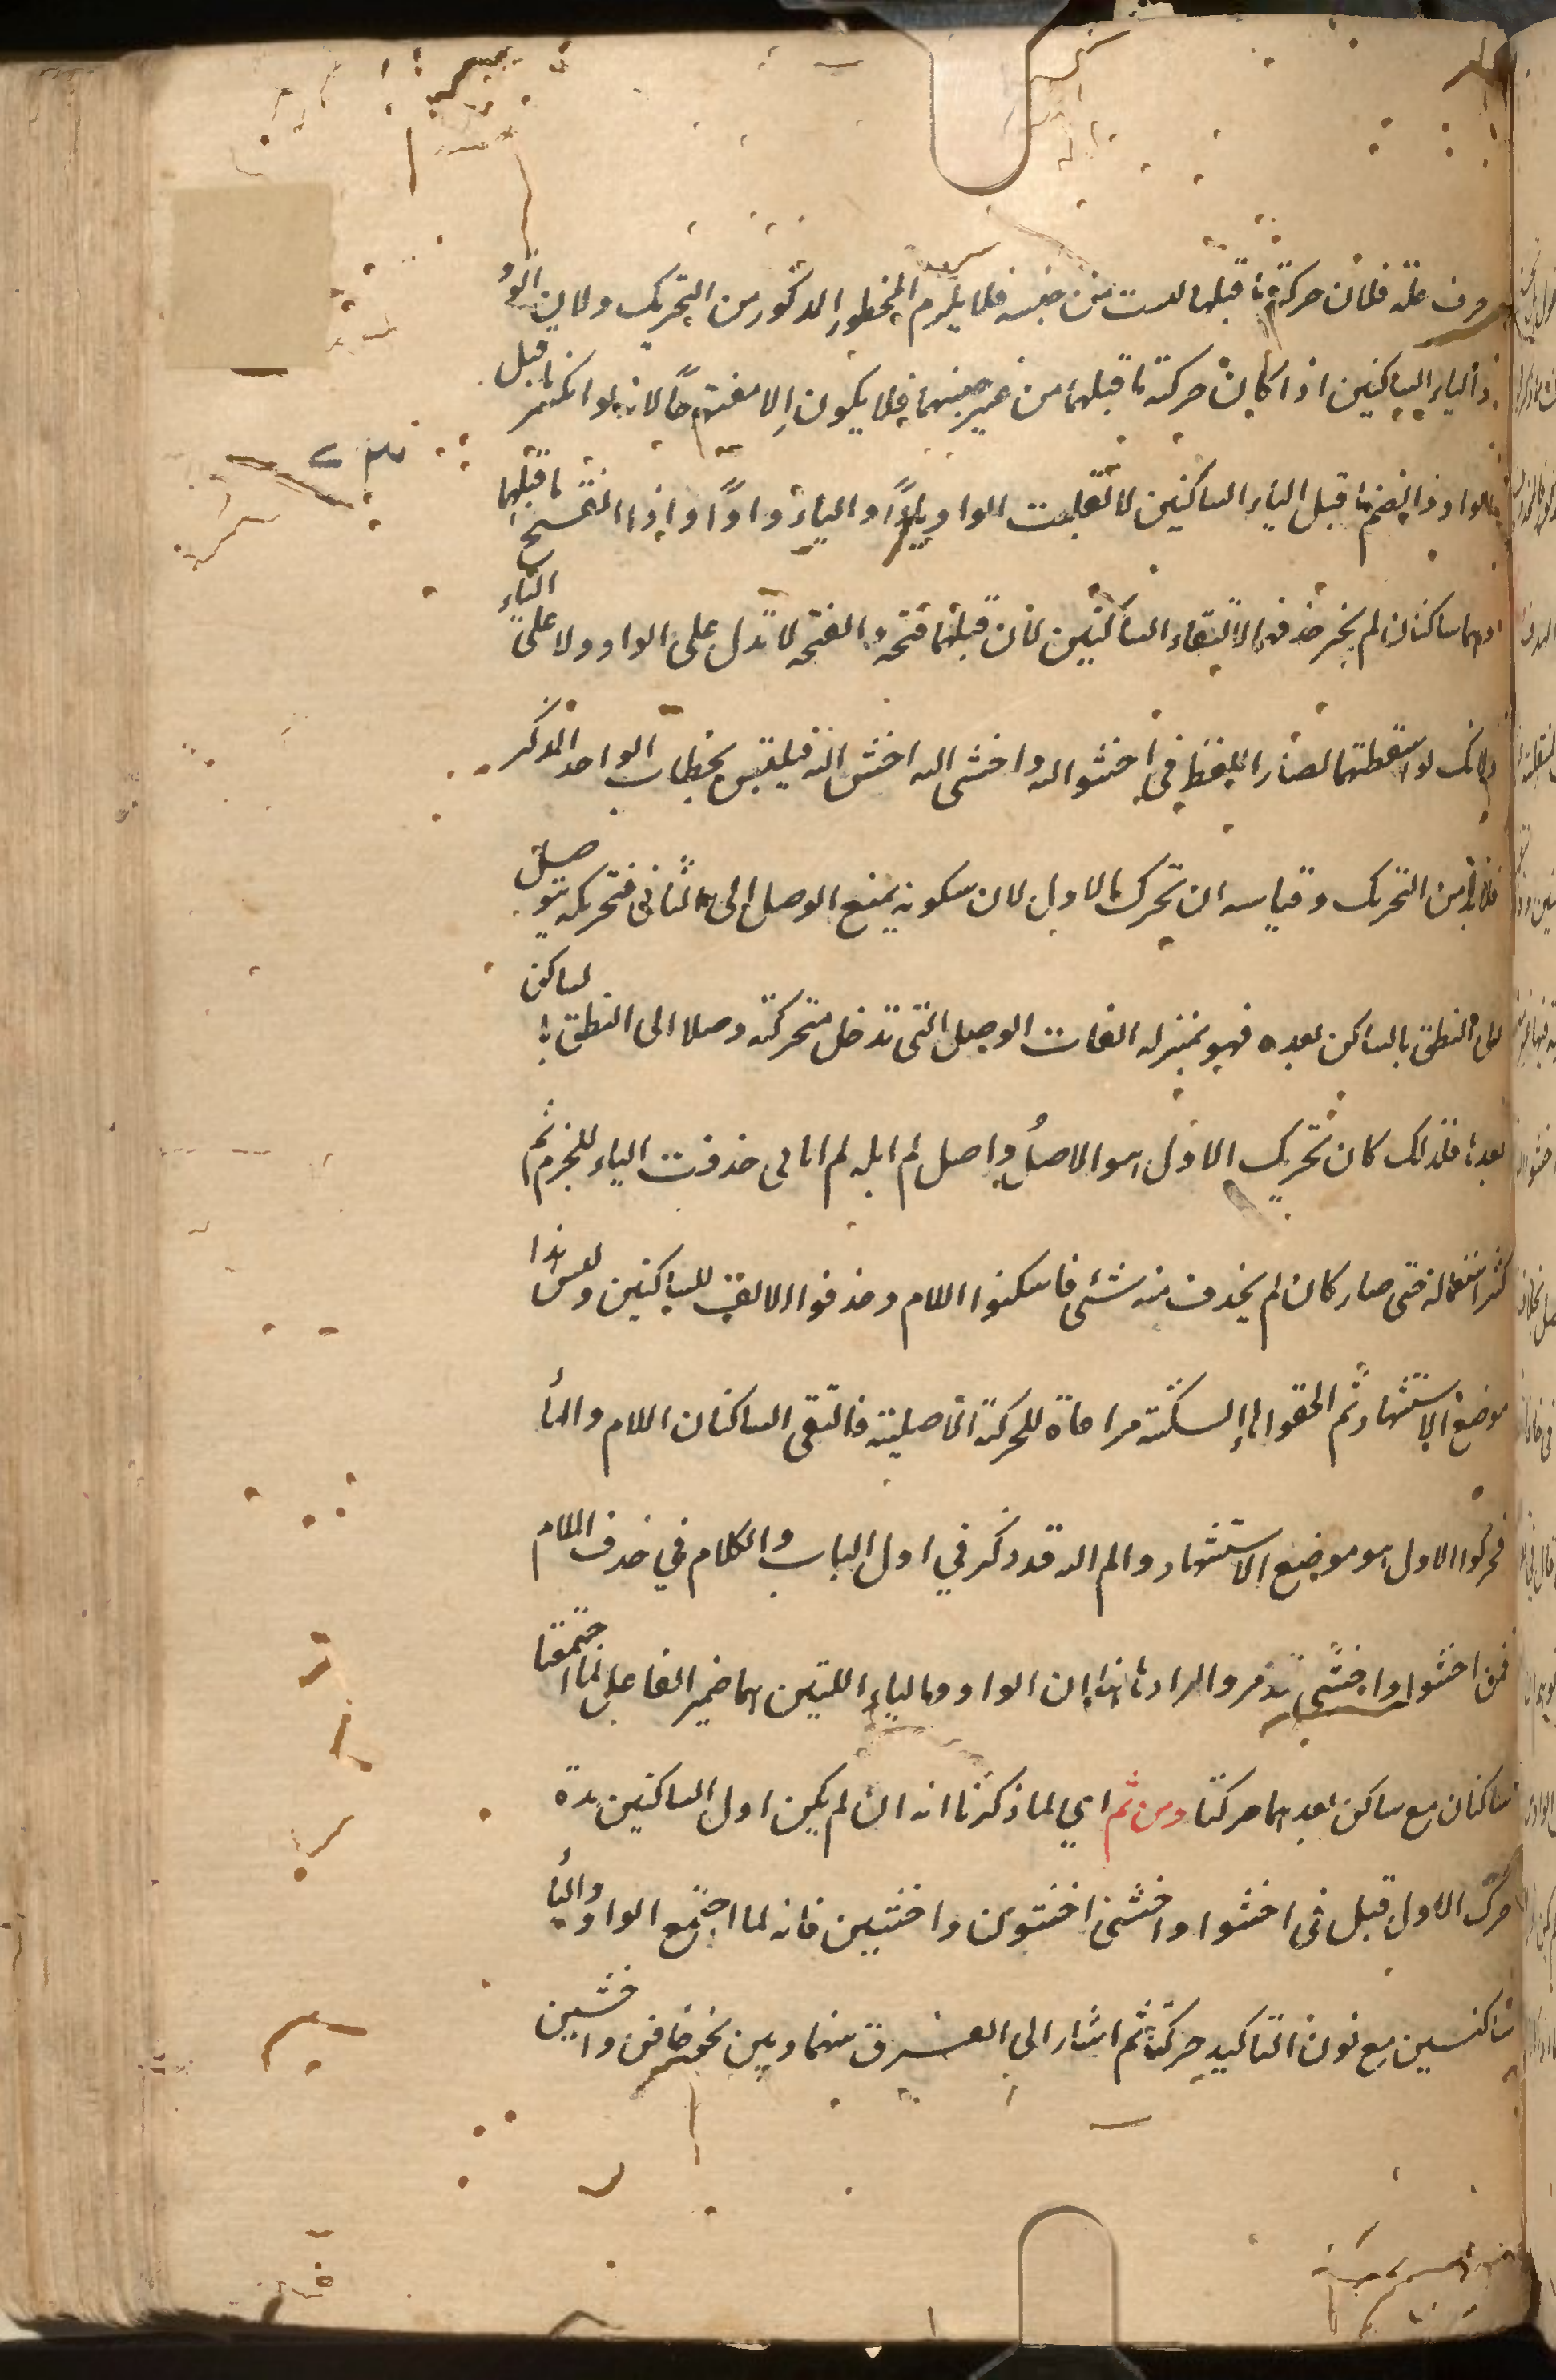 حرف علة فلان حركة ما قبلها ليست من جنسه فلا يلزم المحظور المذكور من التحريك ولان الواو
والياء الساكنين اذا كان حركة ما قبلهما من غير جنسهما فلا يكون الا مفتوحا لانه لو انكسر ما قبل
الواو وانضم ما قبل الياء الساكنين لانقلبت الواو ياءً والياء واوًا واذا انفتح ما قبلهما
وهما ساكنان لم يجز حذفه لالتقاء الساكنين لان قبلهما فتحة والفتحة لا تدل على الواو ولا على الياء
ولانك لو اسقطتهما لصار اللفظ في اخشوا الله واخشى الله اخش الله فيلتبس بخطاب الواحد المذكر
فلا بد من التحريك وقياسه ان تحرك الاول لان سكونه يمنع الوصل الى الثاني فتحريكه توصل
الى النطق بالساكن بعده فهو بمنزلة الفات الوصل التى تدخل متحركة وصلا الى النطق بالساكن
بعدها فلذلك كان تحريك الاول هو الاصل واصل لم ابله لم ابالى حذفت الياء للجزم ثم
كثر استعماله حتى صار كان لم يحذف منه شئ فاسكنوا اللام وحذفوا الالف للساكنين وليس هذا
موضع الاستشهاد ثم الحقوا هاء السكتة مراعاة للحركة الاصلية فالتقى الساكنان اللام والهاء
فحركوا الاول هو موضع الاستشهاد والم الله قد ذكر في اول الباب والكلام في حذف اللام
من اخشوا واخشى قد مر والمراد هاهنا ان الواو والياء اللتين هما ضمير الفاعل لما اجتمعتا
ساكنان مع ساكن بعدهما حركتا ومن ثم اي لما ذكرنا انه ان لم يكن اول الساكنين مدة
حرك الاول قيل في اخشوا واخشى اخشون واخشين فانه لما اجتمع الواو والياء
ساكنين مع نون التاكيد حركتا ثم اشار الى الفرق بينهما وبين نحو خافن واخشين